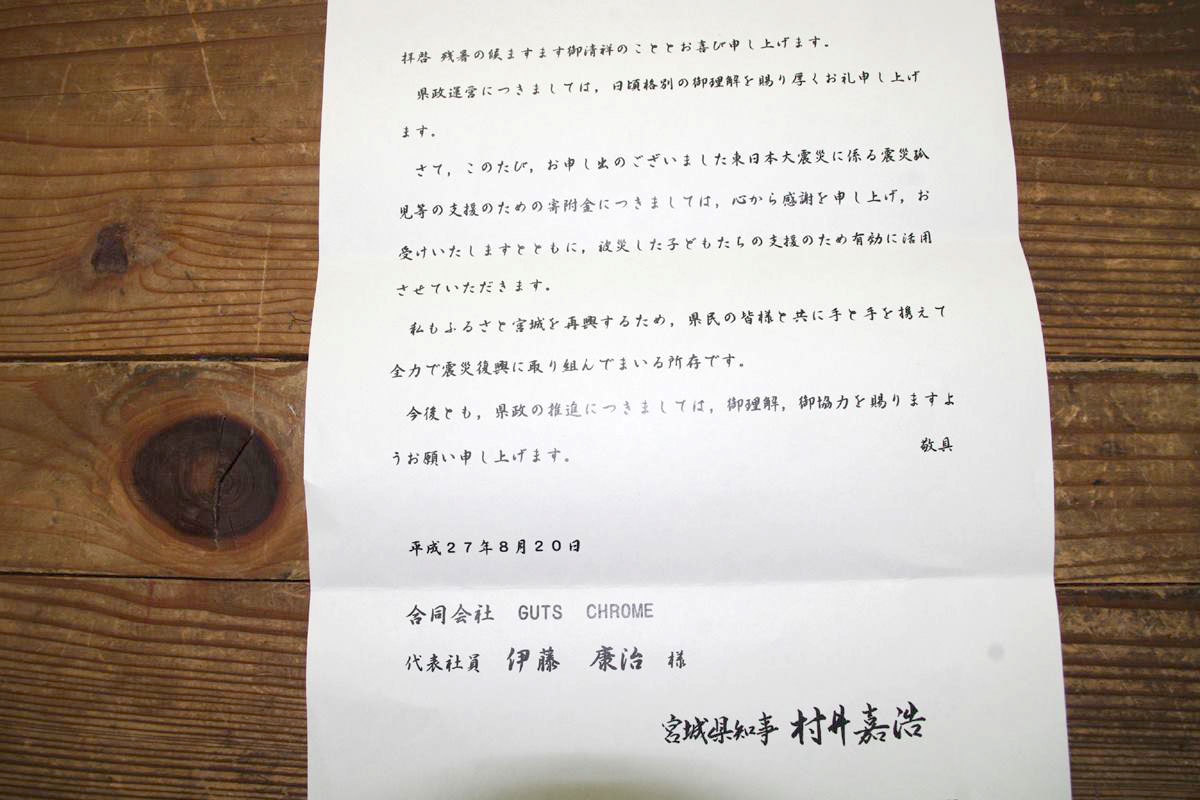 拝啓 残暑の候ますます御清祥のこととお喜び申し上げます。
県政運営につきましては，日頃格別の御理解を賜り厚くお礼申し上げ
ます。
さて，このたび，お申し出のございました東日本大震災に係る震災孤
児等の支援のための寄附金につきましては，心から感謝を申し上げ，お
受けいたしますとともに，被災した子どもたちの支援のため有効に活用
させていただきます。
私もふるさと宮城を再興するため，県民の皆様と共に手と手を携えて
全力で震災復興に取り組んでまいる所存です。
今後とも，県政の推進につきましては，御理解，御協力を賜りますよ
うお願い申し上げます。
敬具
平成２７年８月２０日
合同会社　GUTS　CHROME
代表社員　伊藤　康治　様
宮城県知事 村井嘉浩